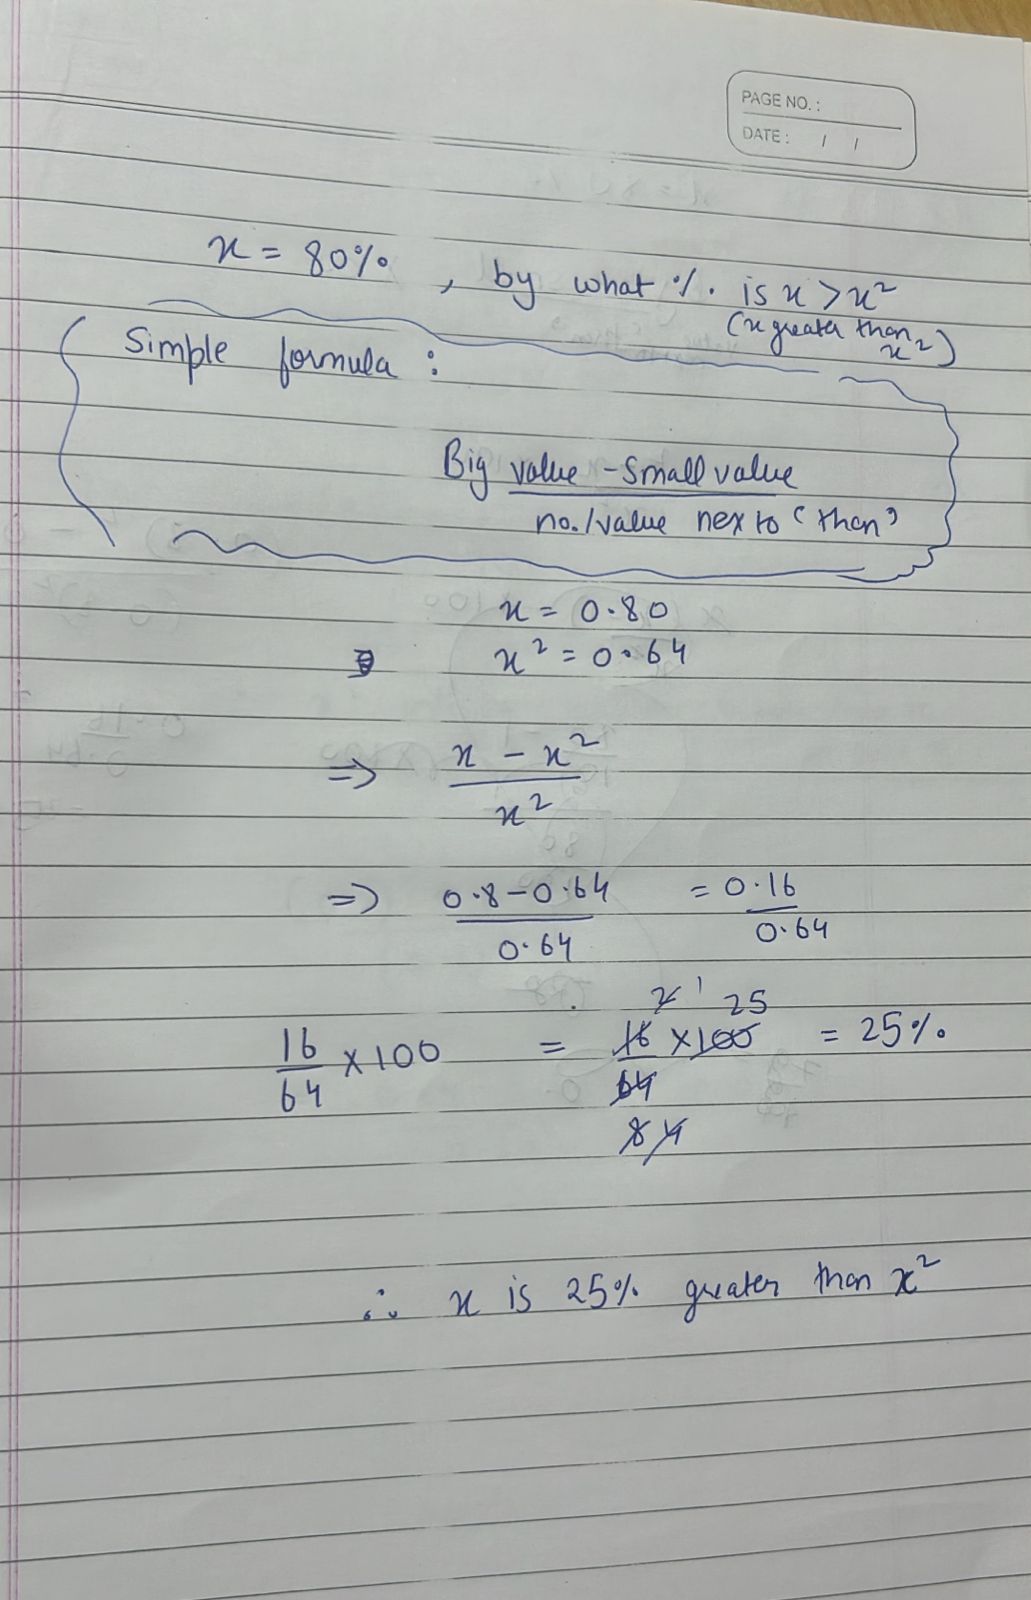 PAGE NO.:
DATE: / /
x = 80% , by what %. is x > x²
(x greater than x²)
Simple formula :
Big value - Small value
no./value next to 'than'
x = 0.80
x² = 0.64
=> x - x²
x²
=> 0.8 - 0.64 = 0.16
0.64 0.64
2 1 25
16 × 100 = 16 × 100 = 25%
64 64
8 4
∴ x is 25% greater than x²